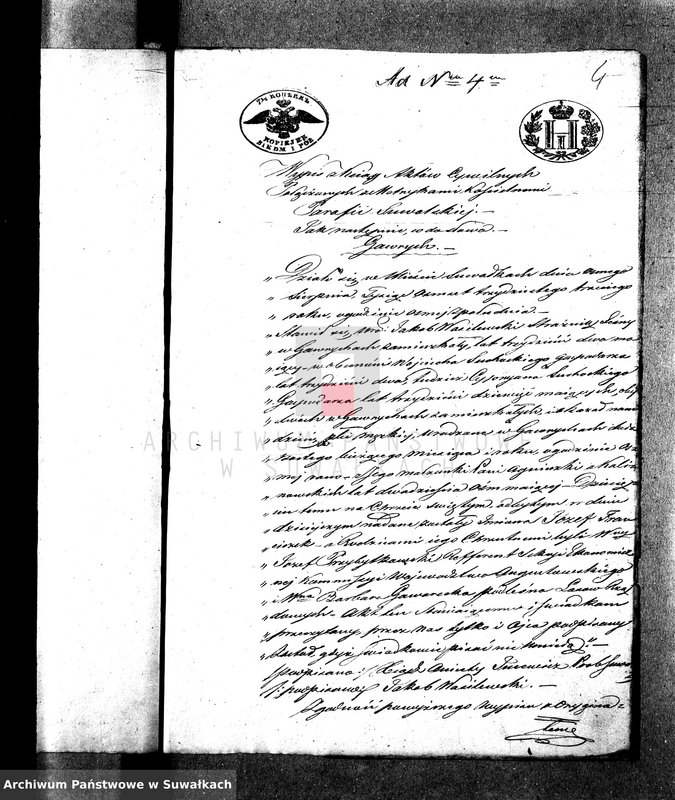 Ad Nrm 4m
4
7½ КОПѢЕКЪ
KOPIEJEK
SIEDM I PÓŁ
Wypis z Księg Aktów Cywilnych
Połączonych z Metrykami Kościelnemi
Parafii Suwalskiej. —
Jak następuie, co do słowa. —
Gawrych. —
„ Działo się w Mieście Suwałkach dnia ósmego
„ Sierpnia, Tysiąc osmset trzydziestego
„ roku, o godzinie osmej z południa —
„ Stawił się, Jakób Wasilewski Strażnik Leśny
„ w Gawrychach zamieszkały, lat trzydzieści dwa ma
„ iący — w obecności Wojciecha Suchockiego gospodarza
„ lat trzydzieści dwa, tudzież Cypryana Suchockiego
„ Gospodarza lat trzydzieści dziewięć maiących, oby
„ dwóch w Gawrychach zamieszkałych, i okazał nam
„ dziecię płci męskiej, urodzone w Gawrychach
„ bieżącego miesiąca i roku, o godzinie
„ rano — z Jego małżonki Pani Agnieszki z Kalin
„ nowskich lat dwadzieścia ośm maiącej — Dziecię
„ ciu temu na Chrzcie świętym odbytym w dniu
„ dzisiejszym nadane zostały Imiona Józef Fran
„ ciszek — a Rodzicami iego Chrzestnemi byli
„ Józef Przybytkowski Sekcyi Ekonomicz
„ nej Kommissyi Województwa Augustowskiego
„ i Barbara Gaworecka Lasów Rzą
„ dowych — Akt ten Stawiaiącemu i świadkom
„ przeczytany, przez nas tylko i Ojca podpisany
„ został, gdyż świadkowie pisać nie umieią —
(podpisano:) Xiądz
/: podpisano:/ Jakób Wasilewski. —
Zgodność powyższego wypisu z orygina=
łem
ARCHIWUM PAŃSTWOWE
W SUWAŁKACH
Archiwum Państwowe w Suwałkach